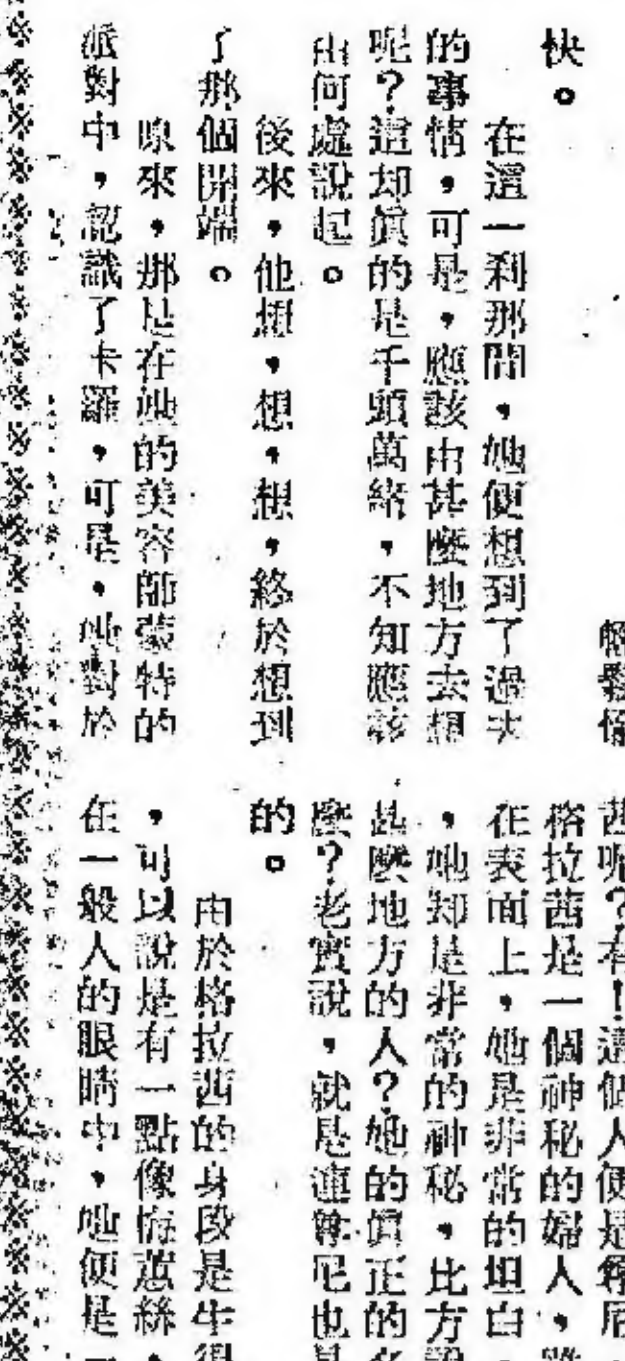 快。
在這一刹那間，她便想到了過去
的事情，可是，應該由甚麼地方去想
呢？這却眞的是千頭萬緒，不知應該
由何處說起。
後來，他想，想，想，終於想到
了那個開端。
原來，那是在她的美容師蒙特的
派對中，認識了卡羅，可是，她對於
茜呢？有！這個人便是尊尼
格拉茜是一個神秘的婦人，
在表面上，她是非常的坦白
，她却是非常的神秘，比方
甚麼地方的人？她的眞正的
麼？老實說，就是連尊尼也
的。
由於格拉茜的身段是生得
，可以說是有一點像
在一般人的眼睛中，她便是